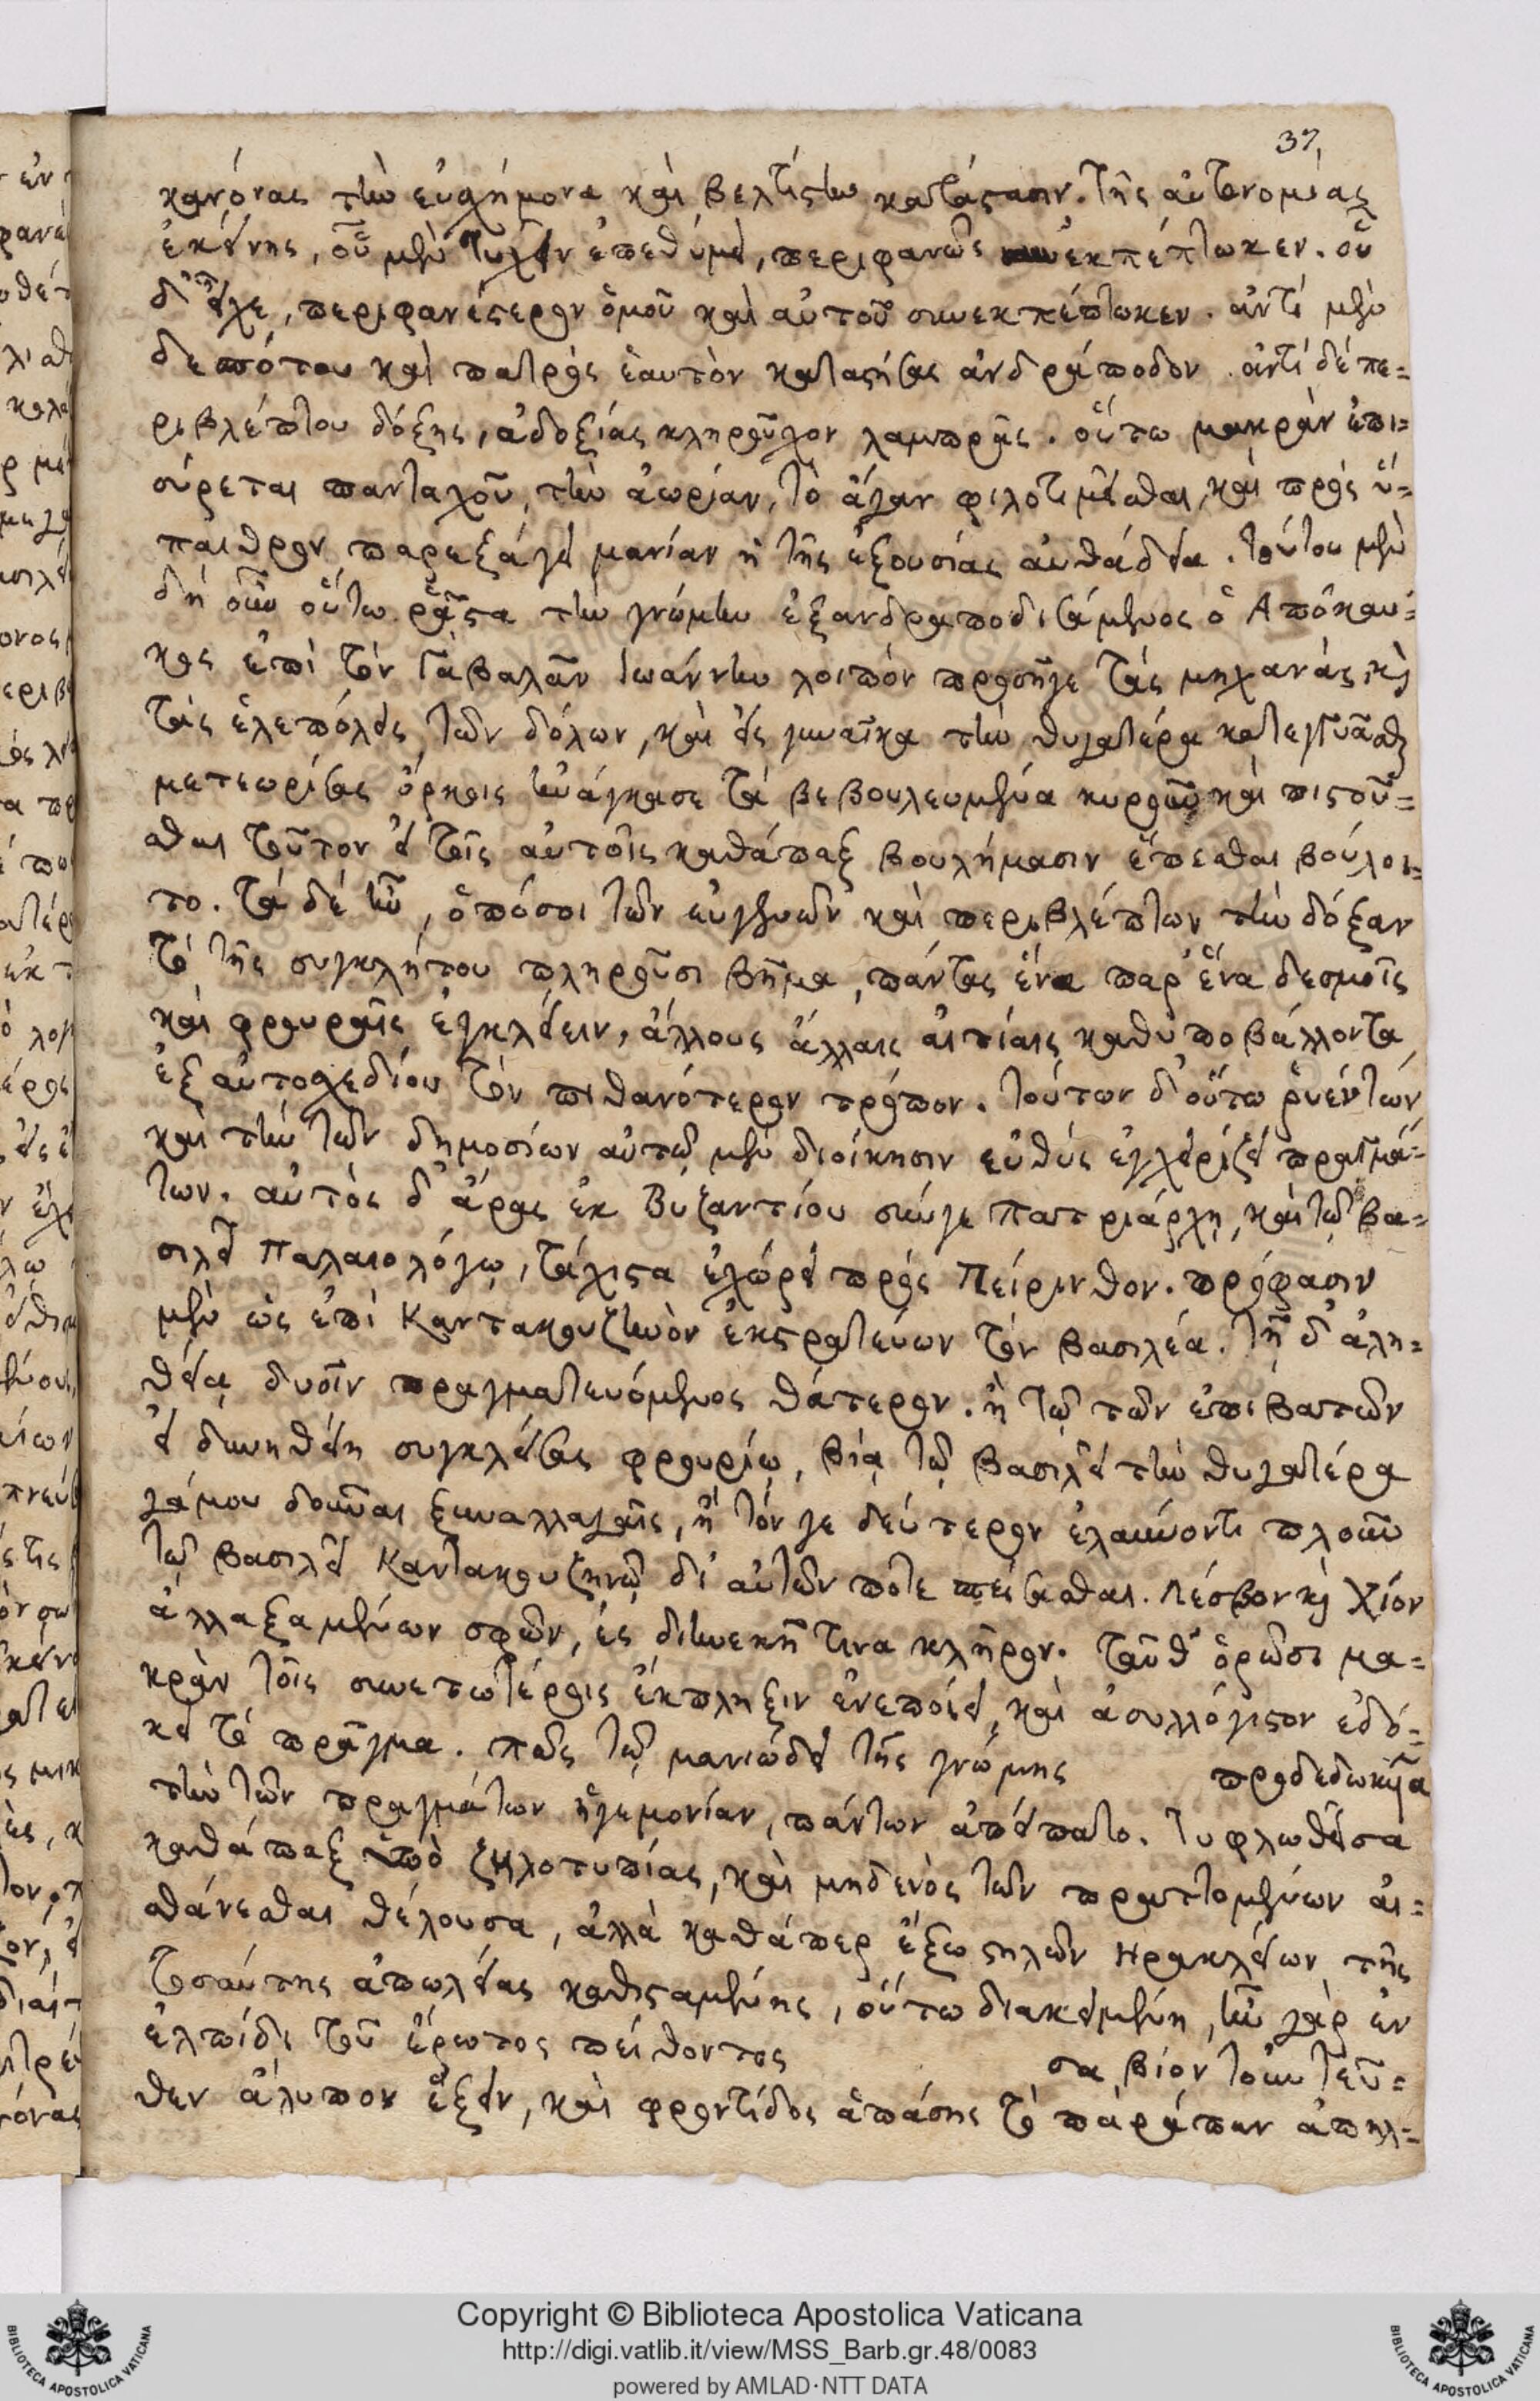 37
κανόνας τὴν εὐσχήμονα καὶ βελτίστην κατάστασιν. τῆς αὐτονομίας
ἐκείνης, οὗ μὲν τυχεῖν ἐπεθύμει, περιφανῶς ἐκπέπτωκεν. οὗ
δ' εἶχε, περιφανέστερον ὁμοῦ καὶ αὐτοῦ συνεκπέπτωκεν. ἀντὶ μὲν
δεσπότου καὶ πατρὸς ἑαυτὸν καταστήσας ἀνδράποδον. ἀντὶ δὲ πε=
ριβλέπτου δόξης, ἀδοξίας κληροῦχον λαμπρᾶς. οὕτω μακρὰν ἐπι=
σύρεται πανταχοῦ, τὴν ἀωρίαν, τὸ ἄγαν φιλοτιμεῖσθαι, καὶ πρὸς ὕ=
παιθρον παρεξάγει μανίαν ἡ τῆς ἐξουσίας αὐθάδεια. τούτου μὲν
δὴ οὖν οὕτω ῥᾷστα τὴν γνώμην ἐξανδραποδισάμενος ὁ Ἀπόκαυ=
κος ἐπὶ τὸν Γαβαλᾶν Ἰωάννην λοιπὸν προσῆγε τὰς μηχανάς, καὶ
τὰς ἑλεπόλεις τῶν δόλων, καὶ εἰς γυναῖκα τὴν θυγατέρα κατεγγυᾶσθαι
μετεωρίσας ὅρκοις ἠνάγκασε τὰ βεβουλευμένα κυροῦν καὶ πιστοῦ=
σθαι τοῦτον εἰ τοῖς αὐτοῖς καθάπαξ βουλήμασιν ἕπεσθαι βούλοι=
το. τὰ δὲ ἦν, ὁπόσοι τῶν εὐγενῶν καὶ περιβλέπτων τὴν δόξαν
τὸ τῆς συγκλήτου πληροῦσι βῆμα, πάντας ἕνα παρ' ἕνα δεσμοῖς
καὶ φρουραῖς ἐγκλείειν, ἄλλους ἄλλαις αἰτίαις καθυποβάλλοντα
ἐξ αὐτοσχεδίου τὸν πιθανότερον τρόπον. τούτων δ' οὕτω ῥυέντων
καὶ τὴν τῶν δημοσίων αὐτῷ μὲν διοίκησιν εὐθὺς ἐγχειρίζει πραγμά=
των. αὐτὸς δ' ἄρας ἐκ Βυζαντίου σύν γε πατριάρχῃ, καὶ τῷ βα=
σιλεῖ Παλαιολόγῳ, τάχιστα ἐχώρει πρὸς Πείρινθον. πρόφασιν
μὲν ὡς ἐπὶ Καντακουζηνὸν ἐκστρατεύων τὸν βασιλέα. τῇ δ' ἀλη=
θείᾳ δυοῖν πραγματευόμενος θάτερον. ἢ τῷ τῶν ἐπιβατῶν
εἰ δυνηθείη συγκλείσας φρουρίῳ, βίᾳ τῷ βασιλεῖ τὴν θυγατέρα
γάμου δοῦναι ξυναλλαγαῖς, ἢ τόν γε δεύτερον ἐλαύνοντι πλοῦν
τῷ βασιλεῖ Καντακουζηνῷ δι' αὐτῶν ποτε πείσασθαι. Λέσβον καὶ Χίον
ἀλλαξαμένων σφῶν, ἐς διηνεκῆ τινα κλῆρον. ταῦθ' ὁρῶσι μα=
κρὰν τοῖς συνετωτέροις ἔκπληξιν ἐνεποίει, καὶ ἀσυλλόγιστον ἐδό=
κει τὸ πρᾶγμα. πῶς τῷ μανιώδει τῆς γνώμης προδεδωκυῖα
τὴν τῶν πραγμάτων ἡγεμονίαν, πάντων ἀπείπατο. τυφλωθεῖσα
καθάπαξ ὑπὸ ζηλοτυπίας, καὶ μηδενὸς τῶν πραττομένων αἰ=
σθάνεσθαι θέλουσα, ἀλλὰ καθάπερ ἔξω στηλῶν Ἡρακλείων τῆς
τοσαύτης ἀπωλείας καθισταμένης, οὕτω διακειμένη, ἦν γὰρ ἐν
ἐλπίδι τοῦ ἔρωτος πείθοντος σα βίον τοὐντεῦ=
θεν ἄλυπον ἕξειν, καὶ φροντίδος ἁπάσης τὸ παράπαν ἀπηλ=
Copyright © Biblioteca Apostolica Vaticana
http://digi.vatlib.it/view/MSS_Barb.gr.48/0083
powered by AMLAD·NTT DATA
BIBLIOTECA APOSTOLICA VATICANA
BIBLIOTECA APOSTOLICA VATICANA